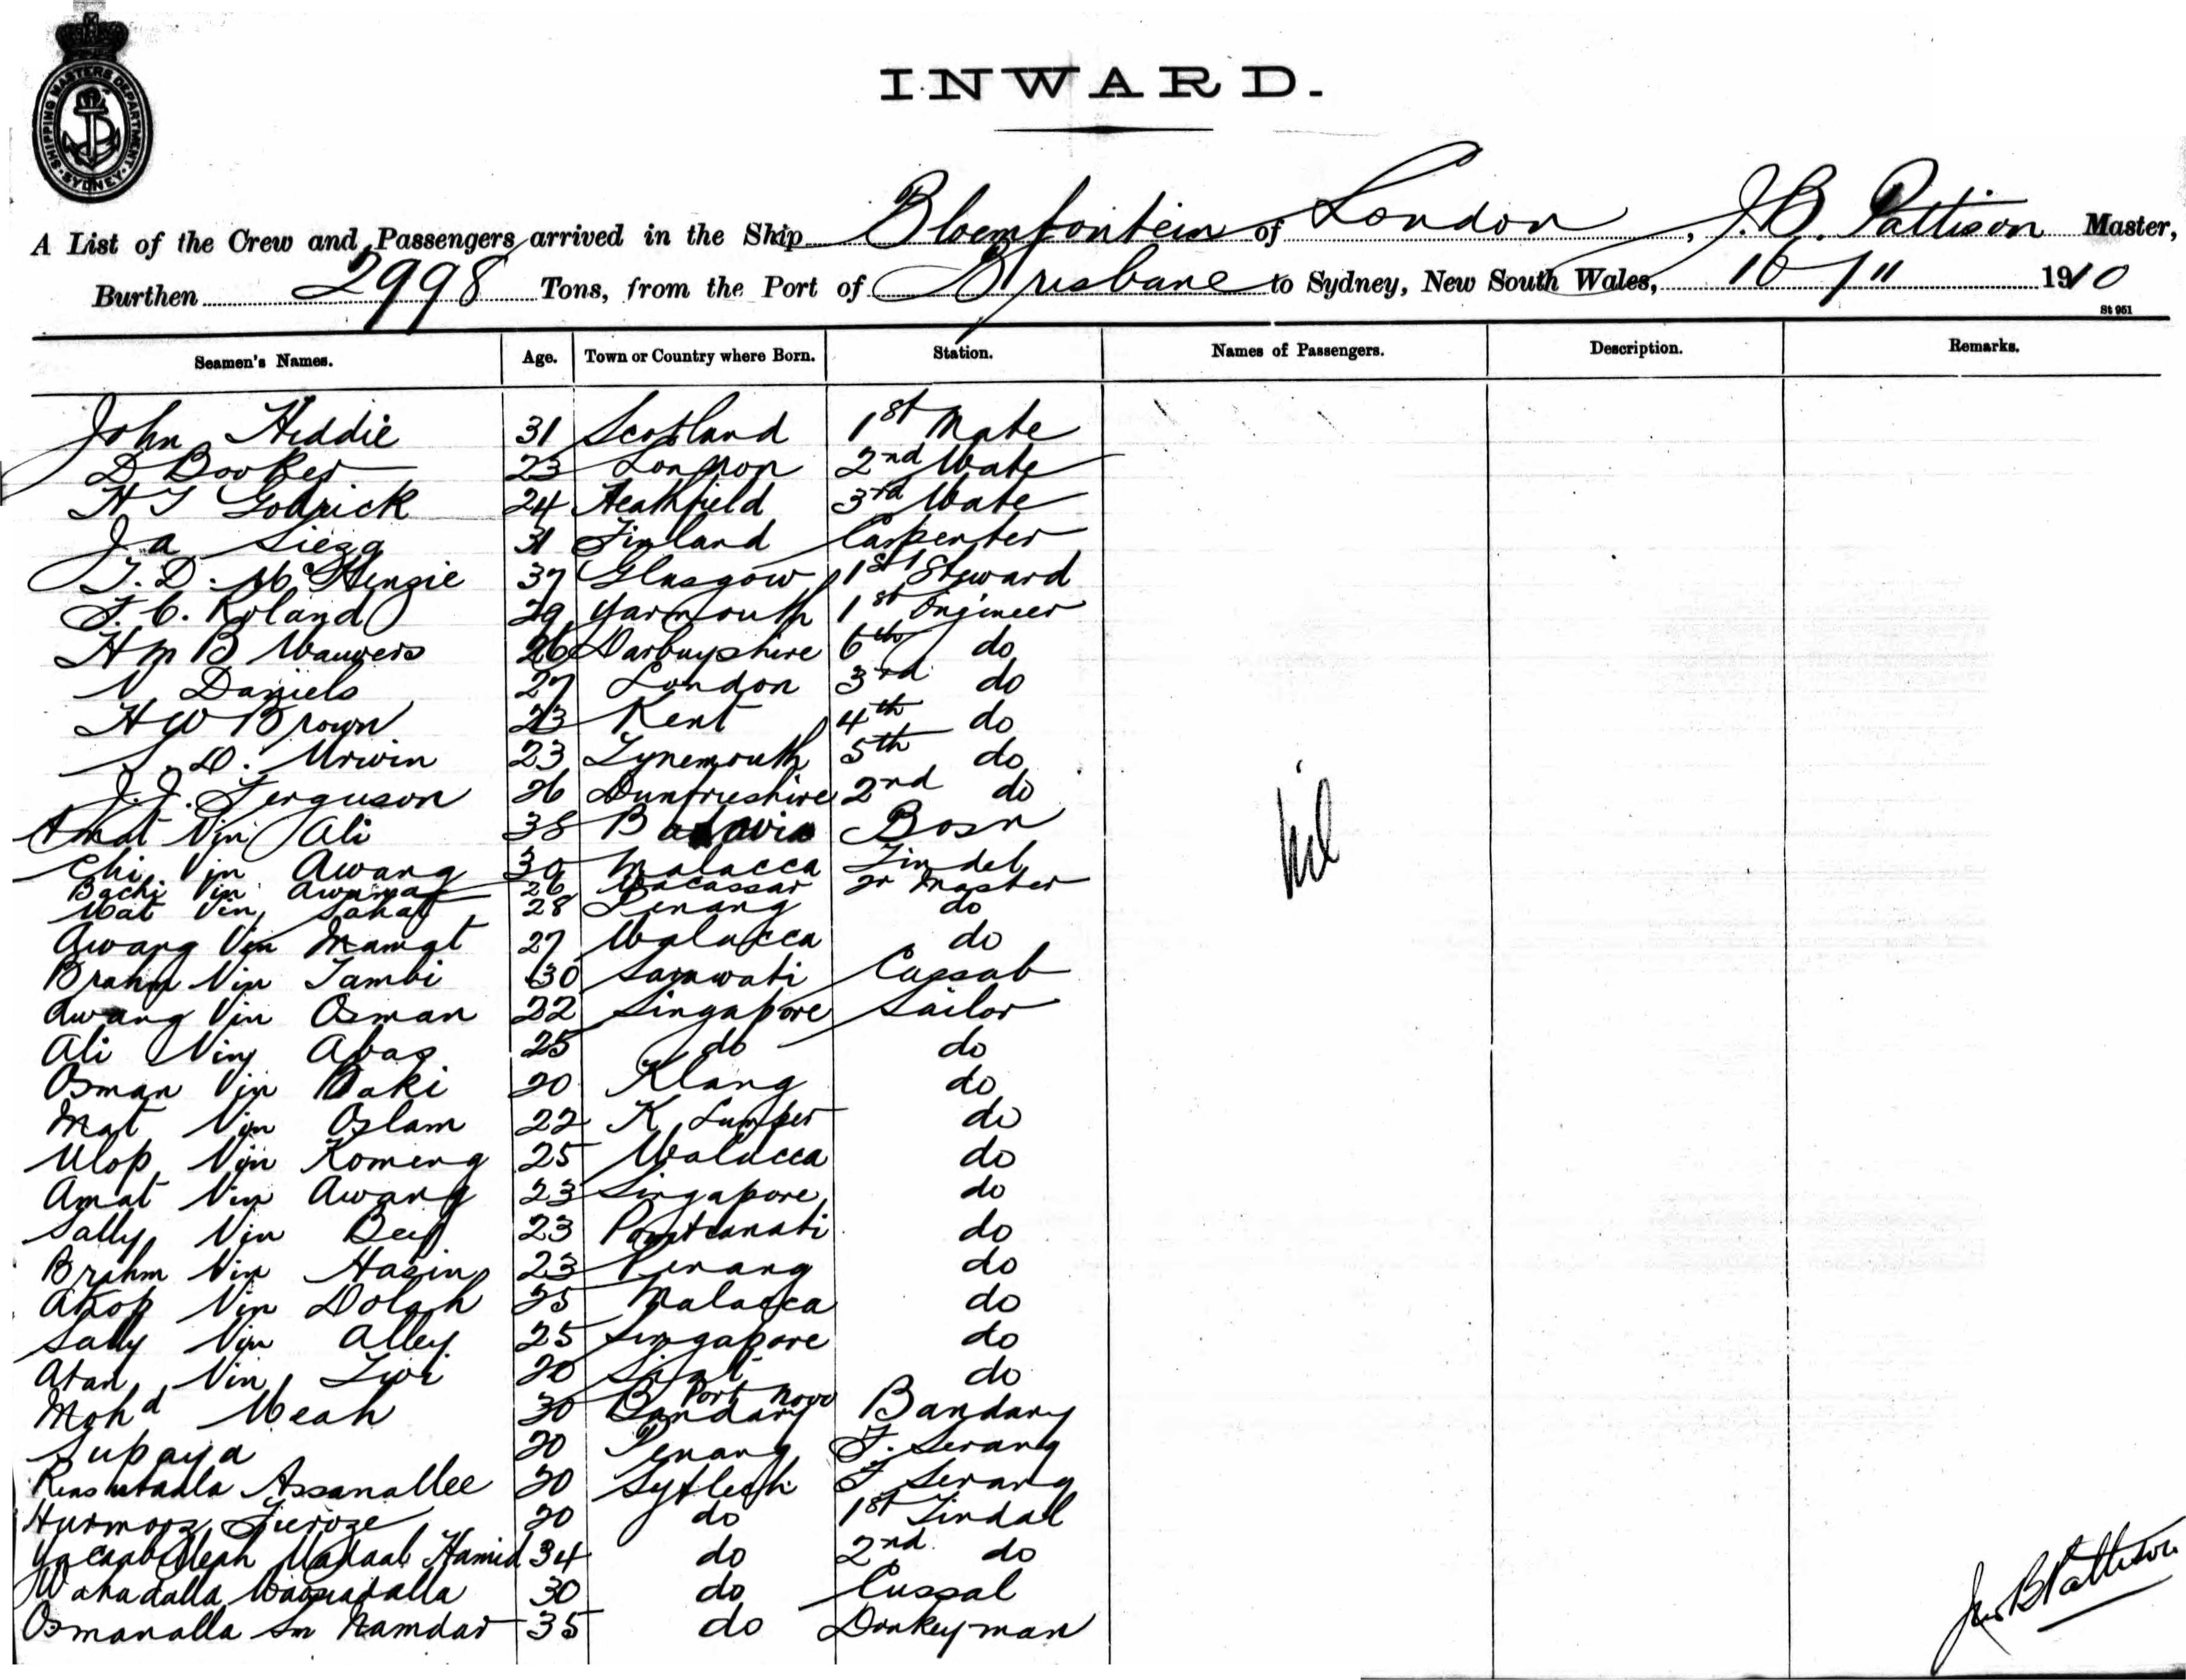 SHIPPING MASTERS DEPARTMENT · SYDNEY ·
INWARD.
A List of the Crew and Passengers arrived in the Ship Bloemfontein of London, J. B. Pattison Master,
Burthen 2998 Tons, from the Port of Brisbane to Sydney, New South Wales, 16/11 1910
St 951
Seamen's Names. Age. Town or Country where Born. Station. Names of Passengers. Description. Remarks.
John Heddie 31 Scotland 1st Mate
D Booker 23 London 2nd Mate
H J Godrick 24 Heathfield 3rd Mate
J a 31 Finland Carpenter
J. D. McKenzie 37 Glasgow 1st Steward
F. C. Roland 29 Yarmouth 1st Engineer
H m B Manvers 26 Darbuyshire 6th do
V Daniels 27 London 3rd do
H W Brown 23 Kent 4th do
D. Urwin 23 Tynemouth 5th do
J. J. Ferguson 26 Dumfrieshire 2nd do
Amat Vin Ali 38 Batavia Bosn
Chi Vin Awang 30 Malacca Tindel
Bachi Vin Awang 26 Macassar Qr Master
Mat Vin Sahat 28 Penang do
Awang Vin Mamat 27 Malacca do
Brahm Vin Tambi 30 Sarawati Cassab
Awang Vin Osman 22 Singapore Sailor
Ali Vin Abas 25 do do
Osman Vin Baki 20 Klang do
Mat Vin Oslam 22 K Lumper do
Ulop Vin Komeng 25 Malacca do
Amat Vin Awang 23 Singapore do
Sally Vin 23 Pontianati do
Brahm Vin Hasin 23 Penang do
Akop Vin Dolah 25 Malacca do
Sally Vin Alley 25 Singapore do
Atan Vin 20 do
Mohd Meah 30 Bandary Port Novo Bandary
Supaya 20 Penang F. Serang
Assanallee 20 Sytlech F Serang
Hurmooz Fieroze 20 do 1st Tindal
Hamid 34 do 2nd do
Wahadalla 30 do Cussal
Osmanalla Sm Namdar 35 do Donkeyman
nil
Jno B Pattison